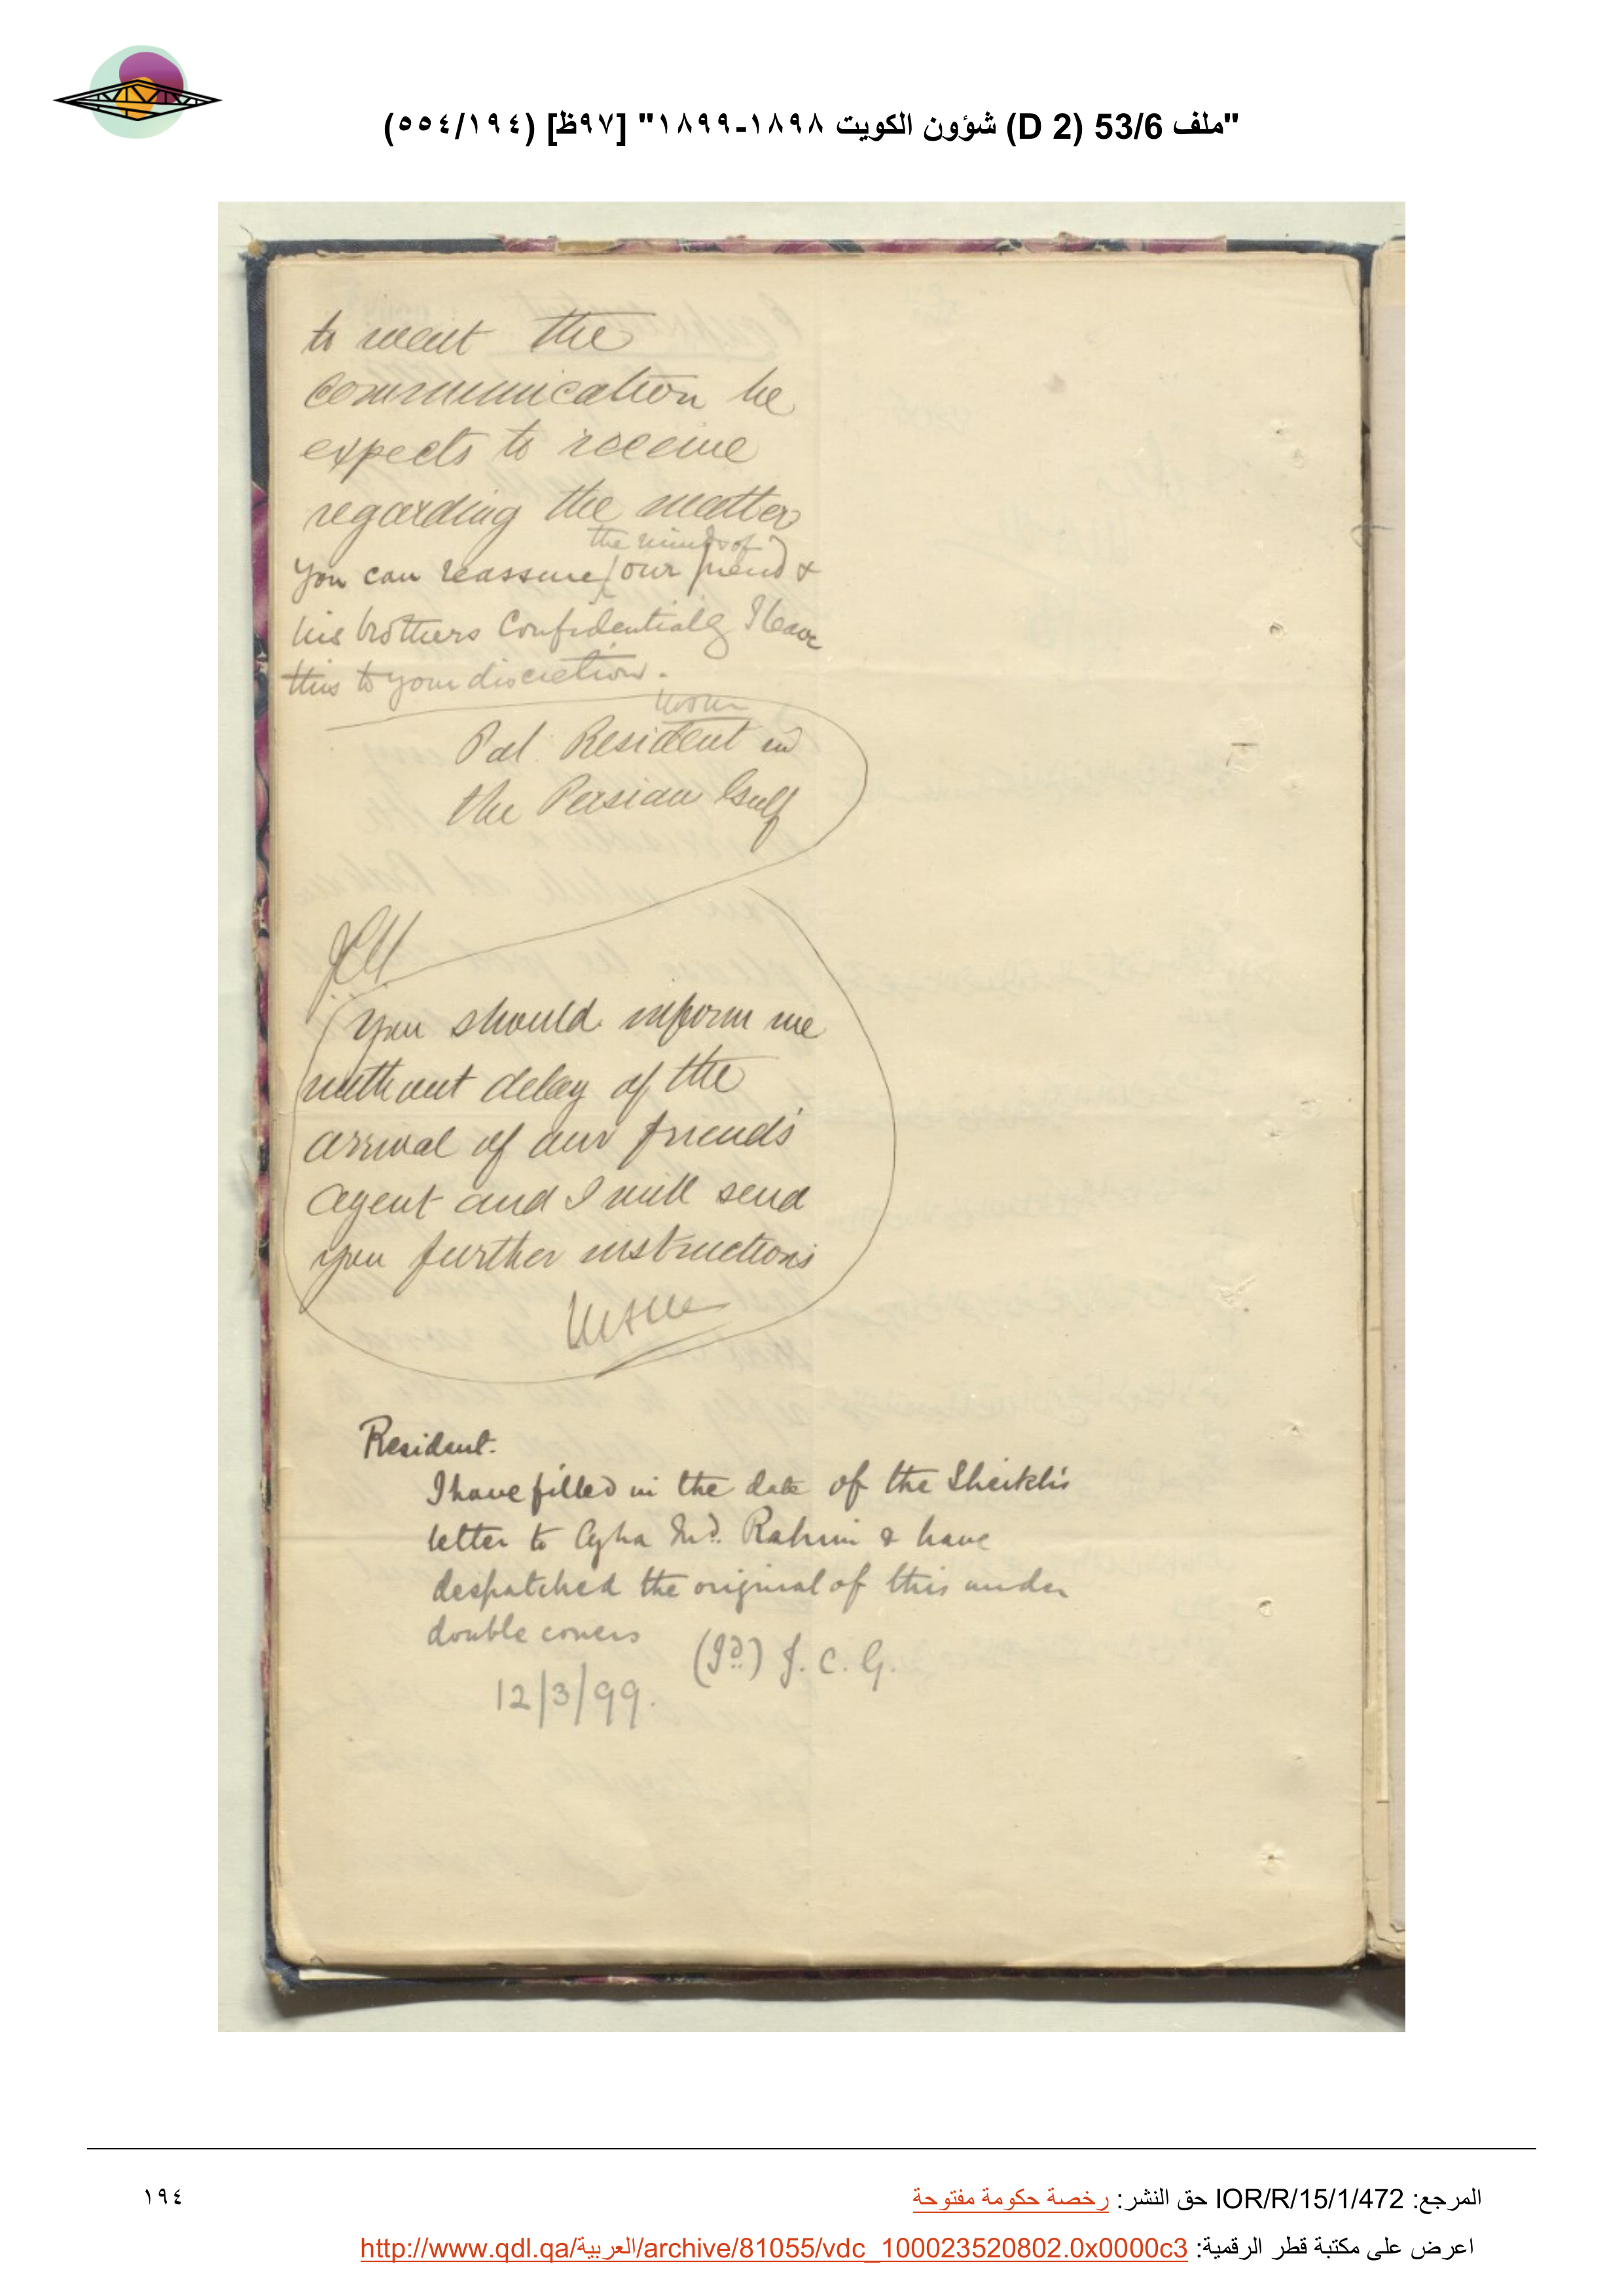 "ملف 53/6 (D 2) شؤون الكويت ١٨٩٨-١٨٩٩" [٩٧ظ] (٥٥٤/١٩٤)
to await the
communication he
expects to receive
regarding the matter
the minds of
You can reassure our friend &
his brothers Confidentially I leave
this to your discretion.
Pol. Resident in
the Persian Gulf
You should inform me
without delay of the
arrival of our friend's
agent and I will send
you further instructions
MJM
Resident.
I have filled in the date of the Sheikh's
letter to Agha Md. Rahim & have
despatched the original of this under
double covers
(Sd.) J. C. G.
12/3/99.
المرجع: IOR/R/15/1/472 حق النشر: رخصة حكومة مفتوحة
١٩٤
اعرض على مكتبة قطر الرقمية: http://www.qdl.qa/العربية/archive/81055/vdc_100023520802.0x0000c3